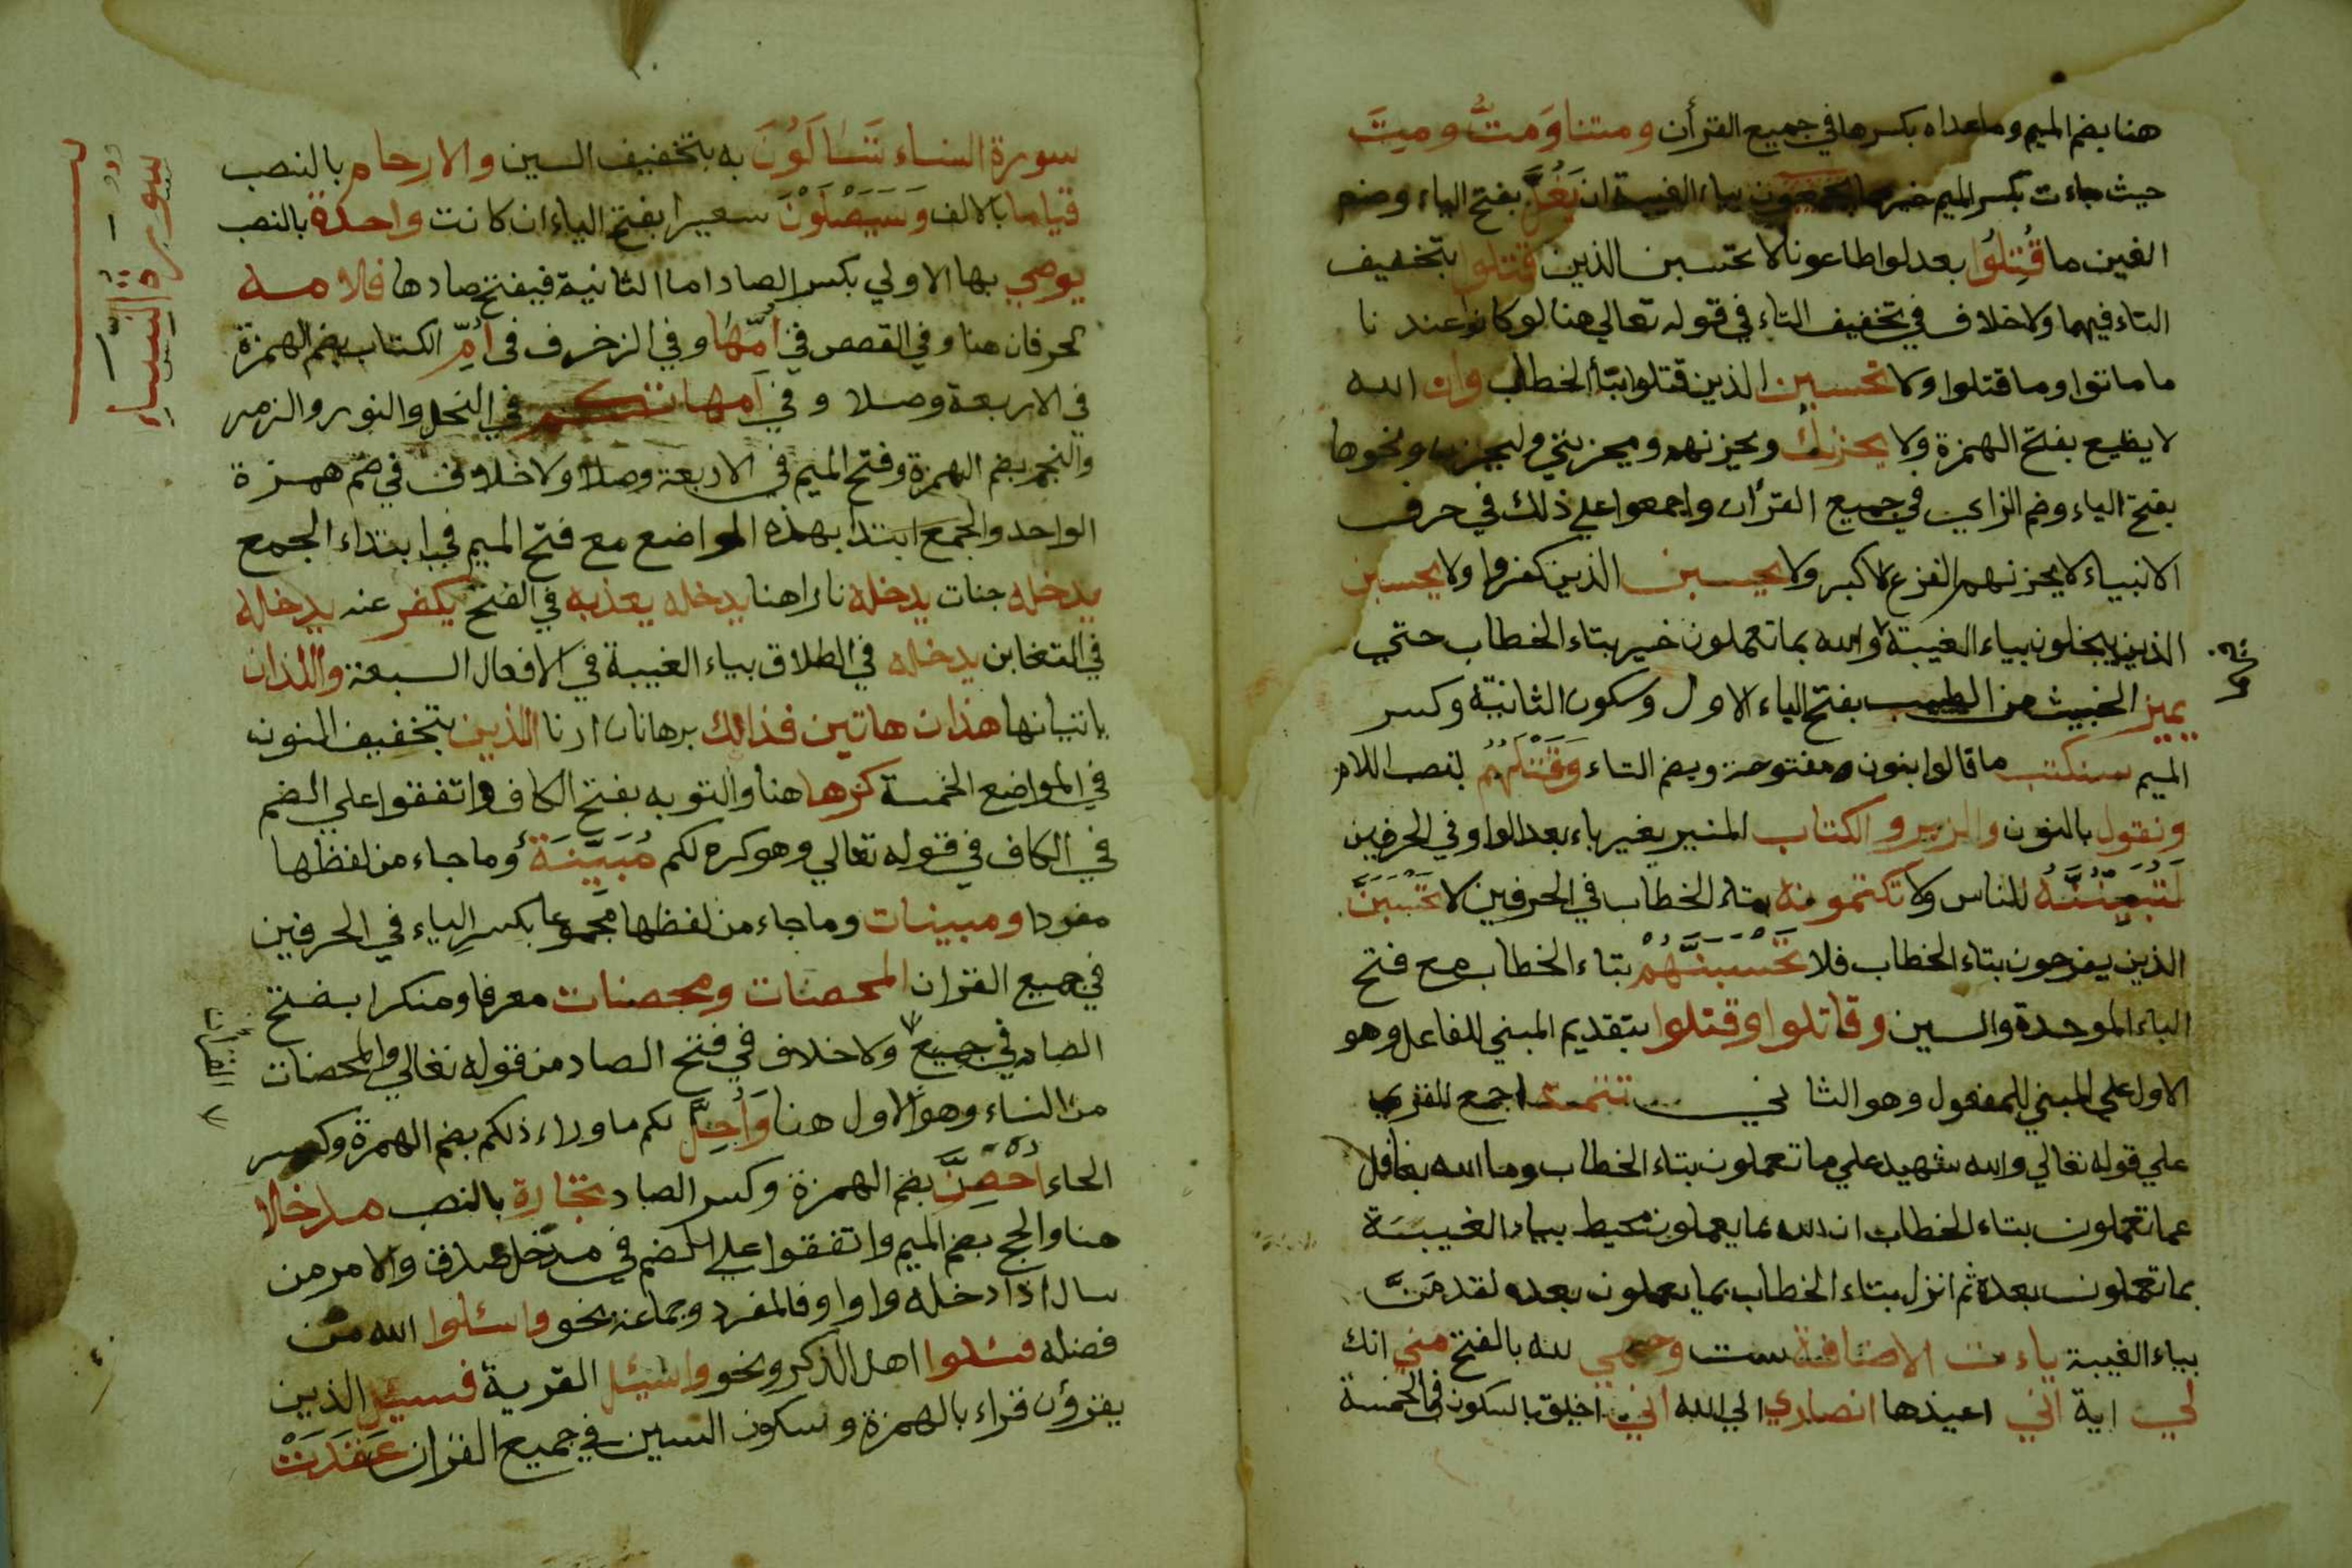 هنا بضم الميم وما عداه بكسرها في جميع القرأن ومتنا ومتُّ وميتَ
حيث جاءت بكسر الميم خير مما يجمعون بياء الغيبة ان يَغُلَّ بفتح الياء وضم
الغين ما قُتِلُوا بعد لو اطاعونا لا تحسبن الذين قتلوا بتخفيف
التاء فيهما ولا خلاف في تخفيف التاء في قوله تعالي هنا لو كانوا عند نا
ما ماتوا وما قتلوا ولا تحسبن الذين قتلوا بتأ الخطاب وان الله
لا يظيع بفتح الهمزة ولا يحزنك ويحزنهم ويحزنني وليحزن ونحوها
بفتح الياء وضم الزاي في جميع القرأن واجمعوا علي ذلك في حرف
الانبياء لا يحزنهم الفزع الاكبر ولا يحسبن الذين كفروا ولا يحسبن
الذين يبخلون بياء الغيبة والله بما تعملون خبير بتاء الخطاب حتي
يميز الخبيث من الطيب بفتح الياء الاول وسكون الثانية وكسر
الميم سنكتب ما قالوا بنون مفتوحة وبضم التاء وَقَتْلَهُمُ بنصب اللام
ونقول بالنون والزبر والكتاب المنير بغير باء بعد الواو في الحرفين
لَتُبَيِّنُنَّهُ للناس ولا تكتمونه بتاء الخطاب في الحرفين لا تَحْسَبَنَّ
الذين يفرحون بتاء الخطاب فلا تَحْسَبَنَّهُمْ بتاء الخطاب مع فتح
الباء الموحدة والسين وقاتلوا وقتلوا بتقديم المبني للفاعل وهو
الاول علي المبني للمفعول وهو الثاني .... تتمة اجمع
علي قوله تعالي والله شهيد علي ما تعملون بتاء الخطاب وما الله بغافل
عما تعملون بتاء الخطاب ان الله بما يعملون محيط بياء الغيبَة
بما تعملون بعده ثم انزل بتاء الخطاب بما يعملون بعده لقد مَنَّ
بياء الغيبة ياءت الاضافة ست وجهي لله بالفتح مني انك
لي اية اني اعيذها انصاري الي الله اني اخلق بالسكون في الخمسة
سورة النساء
سورة النساء تَسَاءَلُونَ به بتخفيف السين والارحام بالنصب
قياما بالالف وَسَيَصْلَوْنَ سعيرا بفتح الياء ان كانت واحدة بالنصب
يوصي بها الاولي بكسر الصاد اما الثانية فيفتح صادها فلامه
الحرفان هنا وفي القصص في أمّها وفي الزخرف في أمِّ الكتاب بضم الهمزة
في الاربعة وصلا وفي امهاتكم في النحل والنور والزمر
والنجم بضم الهمزة وفتح الميم في الاربعة وصلا ولا خلاف في ضم همزة
الواحد والجمع ابتدا بهذه المواضع مع فتح الميم في ابتداء الجمع
يدخله جنات يدخله نارا هنا يدخله يعذبه في الفتح يكفر عنه يدخله
في التغابن يدخله في الطلاق بياء الغيبة في الافعال السبعة واللذان
ياتيانها هذان هاتين فذانك برهانان ارنا الذين بتخفيف النون
في المواضع الخمسة كرها هنا والتوبه بفتح الكاف واتفقوا علي الضم
في الكاف في قوله تعالي وهو كره لكم مُبَيِّنَة وما جاء من لفظها
مفردا ومبينات وما جاء من لفظها مجموعا بكسر الياء في الحرفين
في جميع القران المحصنات ومحصنات معرفا ومنكرا بفتح
الصاد في جميع ولا خلاف في فتح الصاد من قوله تعالي والمحصنات
القرآن
من النساء وهو الاول هنا وَأُحِلَّ لكم ما وراء ذلكم بضم الهمزة وكسر
الحاء أُحْصِنَّ بضم الهمزة وكسر الصاد تجارة بالنصب مدخلا
هنا والحج بضم الميم واتفقوا علي الضم في مدخل صدق والامر من
سال اذا دخله واو او فا لمفرد وجماعة نحو واسئلوا الله من
فضله فسئلوا اهل الذكر ونحو واسئل القرية فسئل الذين
يقرؤن قراء بالهمزة وسكون السين في جميع القران عَقَدَتْ